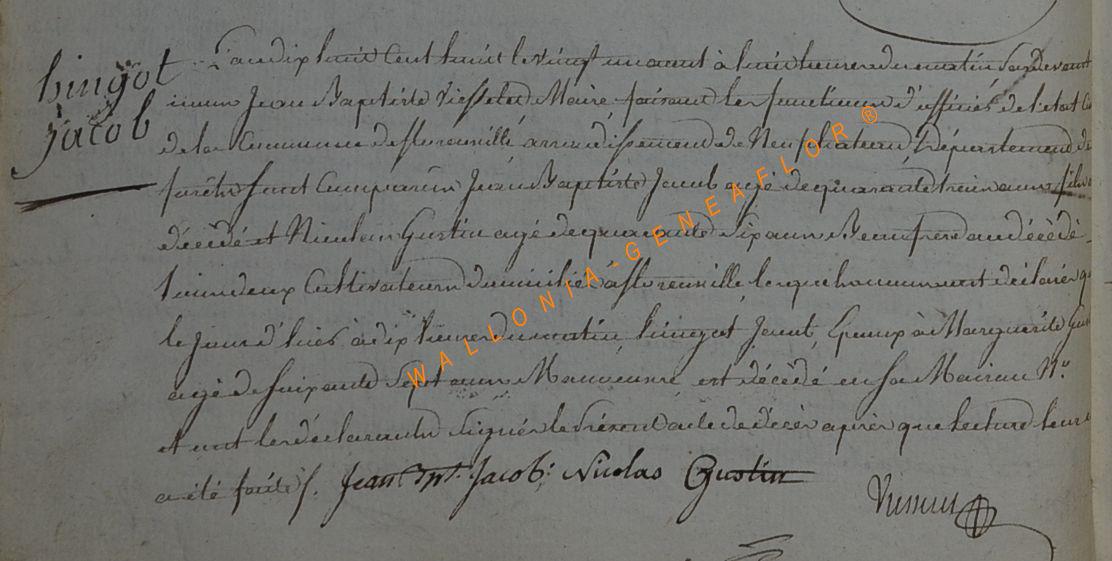 hingot
jacob
L'an dix huit Cent huit le vingt un aout à huit heures du matin par Devant
nous Jean Baptiste Maire faisant les fonctions d'officier de l'etat
de la Commune de floreuville arrondissement de Neufchateau, Département de
forêts sont Comparus Jean Baptiste Jacob agé de quarante trois ans fils
décédé et Nicolas Gustin agé de quarante six ans Beaufrere au décédé
tous deux Cultivateurs domicilié à floreuville lesquels nous ont déclaré
le jour d'hier à dix heures du matin, hingot Jacob, Epoux à Marguerite
agé de soixante sept ans est décédé en sa Maison N.º
et ont les déclarants signés le présent acte de décès après que lecture leur
a été faite /. Jean Bpt. Jacob. Nicolas Gustin
WALLONIA-GENEAFLOR®